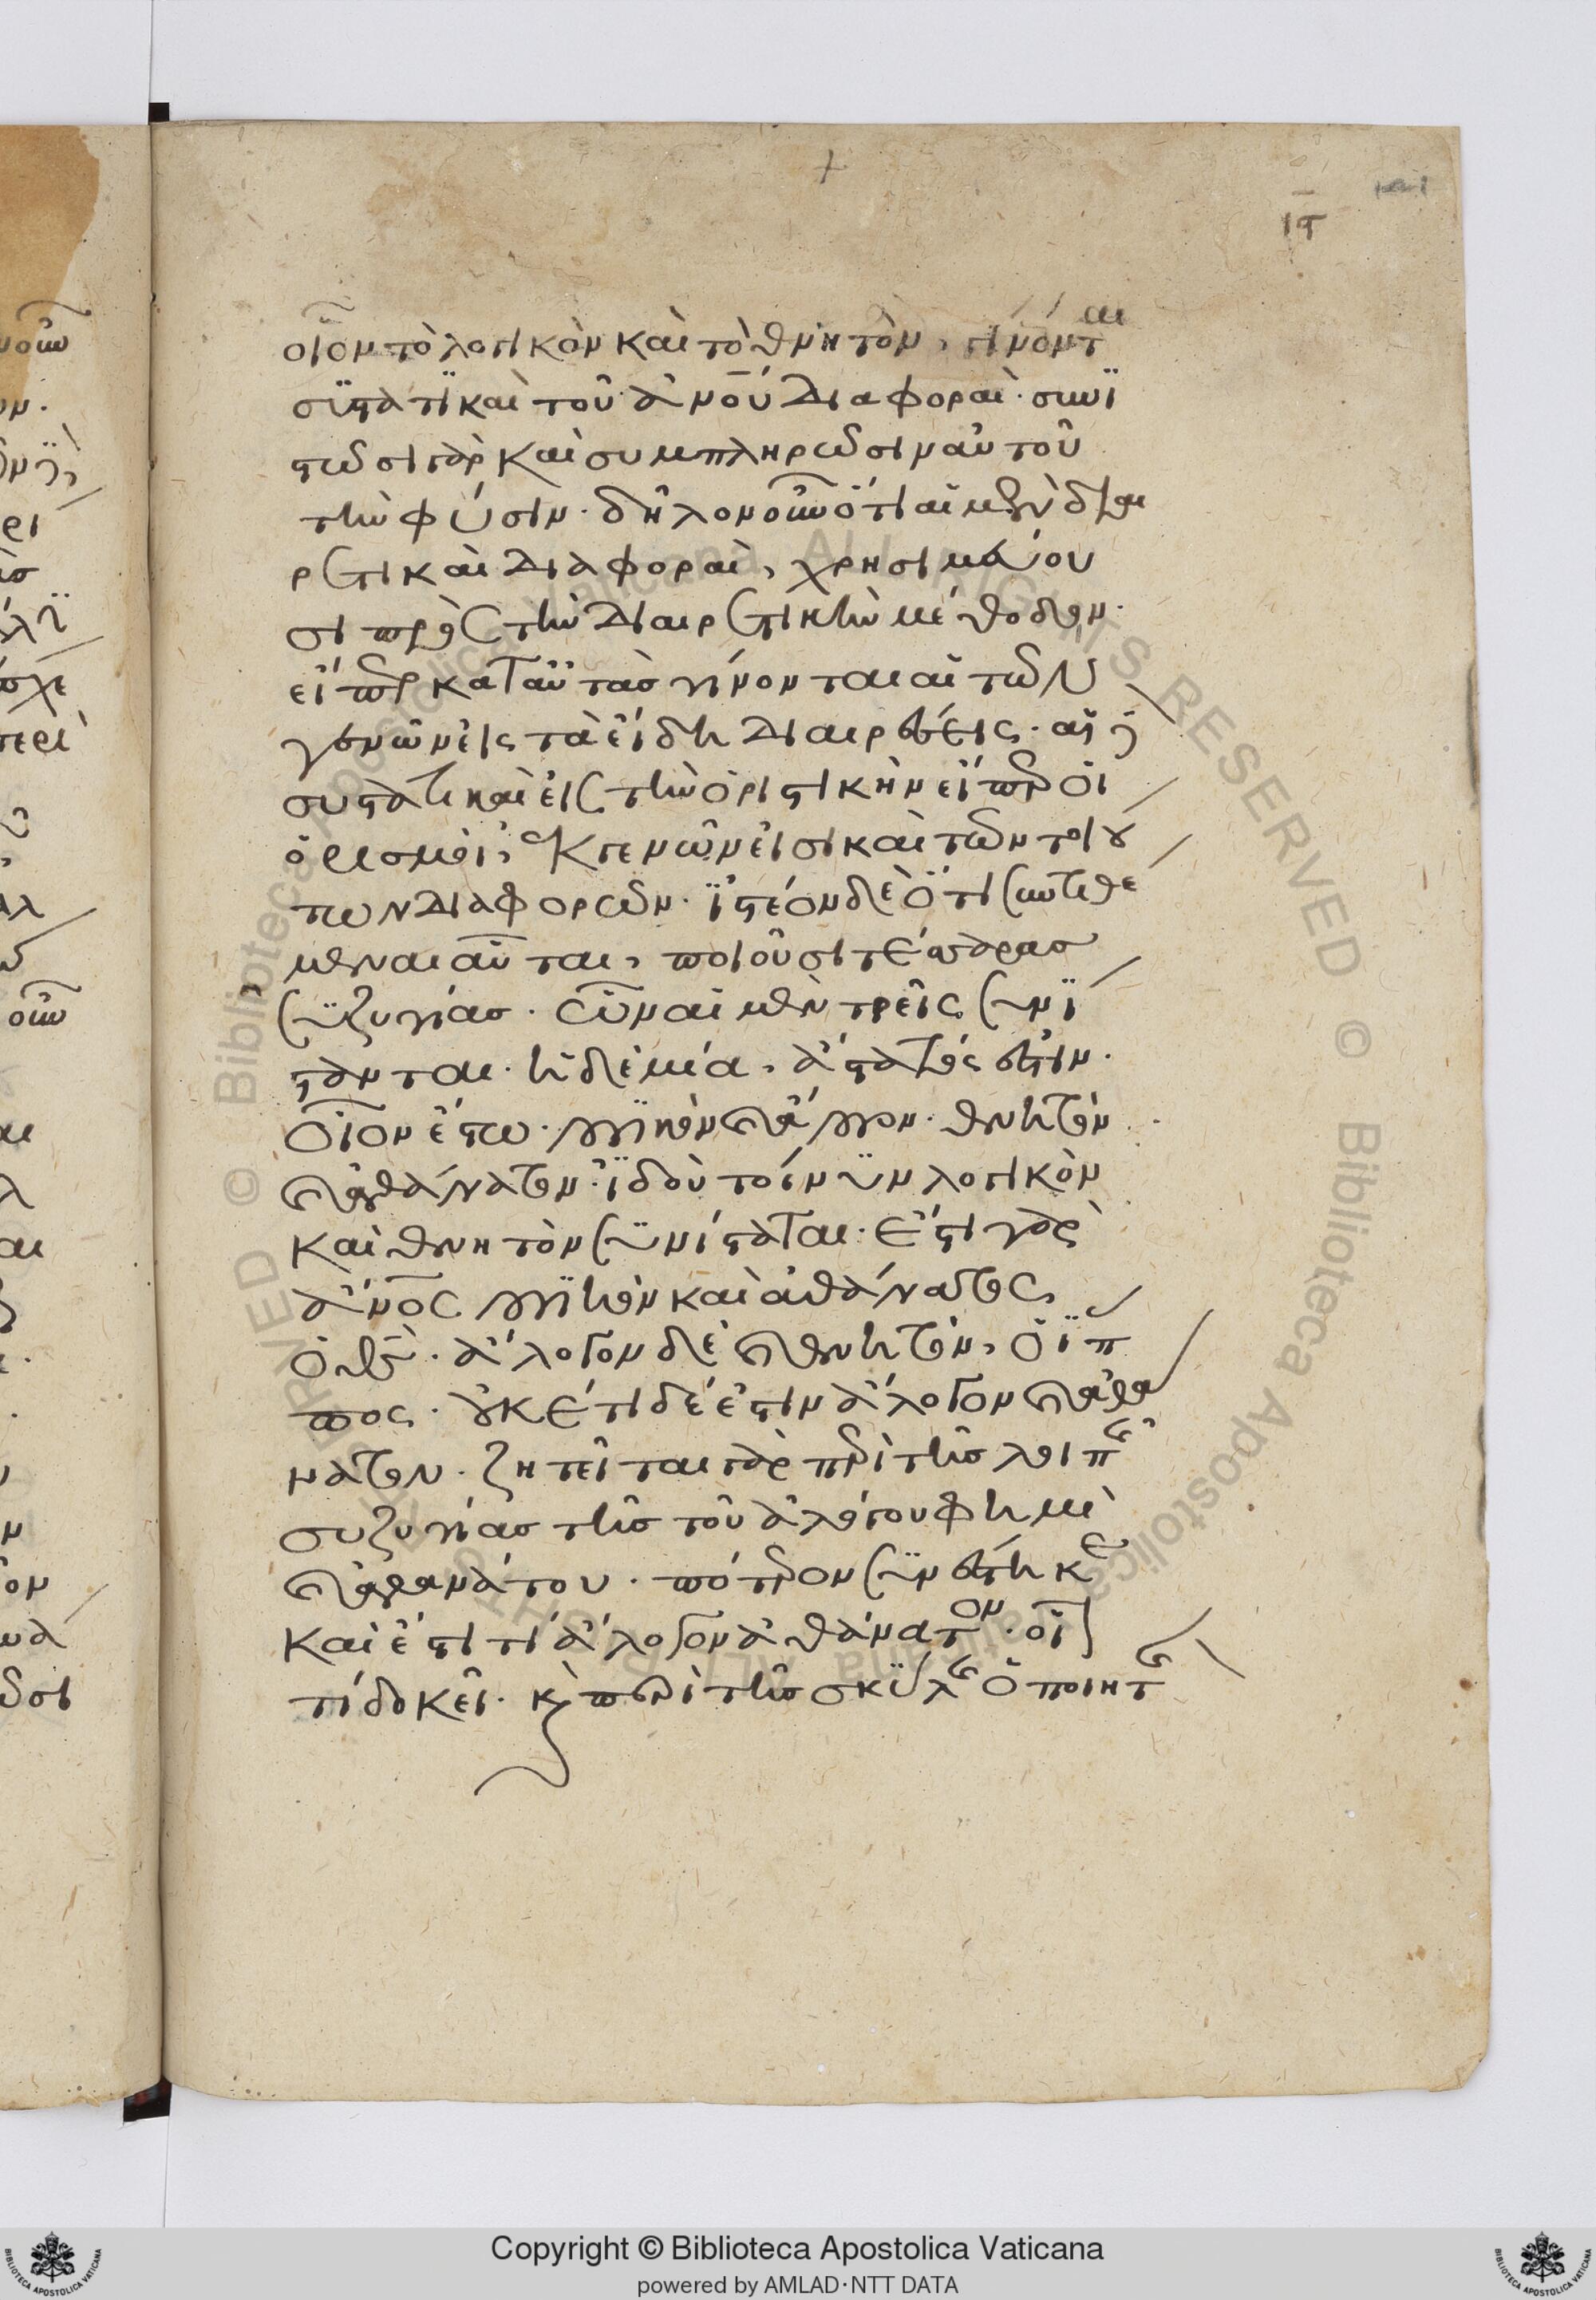 ιϛ
οἷον τὸ λογικὸν καὶ τὸ θνητὸν, γίνονται
συστατικαὶ τοῦ ἀνου διαφοραὶ· συνι
στῶσι γὰρ καὶ συμπληρῶσιν αὐτοῦ
τὴν φύσιν· δῆλον οὖν ὅτι αἱ μὲν διαι
ρετικαὶ διαφοραὶ, χρησιμεύου
σι πρὸς τὴν διαιρετικὴν μέθοδον·
εἴπερ κατ αὐτὰς γίνονται αἱ τῶν
γενῶν εἰς τὰ εἴδη διαιρέσεις· αἱ δὲ
συστατικαὶ εἰς τὴν ὁριστικὴν εἴπερ οἱ
ὁρισμοὶ, ἐκ γενῶν εἰσι καὶ τῶν τοιού
των διαφορῶν· ἰστέον δὲ ὅτι συντιθέ
μεναι αὗται, ποιοῦσι τέσσαρας
συζυγίας· ὧν αἱ μὲν τρεῖς συνί
στανται· ἡ δὲ μία, ἀστατός ἐστιν·
οἷον ἔστω· λογικὸν καὶ ἄλογον· θνητὸν
καὶ ἀθάνατον· ἰδοὺ τοίνυν λογικὸν
καὶ θνητὸν συνίσταται· ἔστι γὰρ
ἀνος λογικὸν καὶ ἀθάνατος,
ὁ θς· ἄλογον δὲ καὶ θνητὸν, ὁ ἵπ
πος· οὐκέτι δέ ἐστιν ἄλογον καὶ ἀθά
νατον· ζητεῖται γὰρ περὶ τῆς λοιπῆς
συζυγίας τῆς τοῦ ἀλόγου φημὶ
καὶ ἀθανάτου· πότερον συνέστηκε
καὶ ἔστι τί ἄλογον ἀθάνατον· οἷς
τί δοκεῖ· κ περὶ τῆς σκύλης ὁ ποιητὴς
Copyright © Biblioteca Apostolica Vaticana
powered by AMLAD·NTT DATA